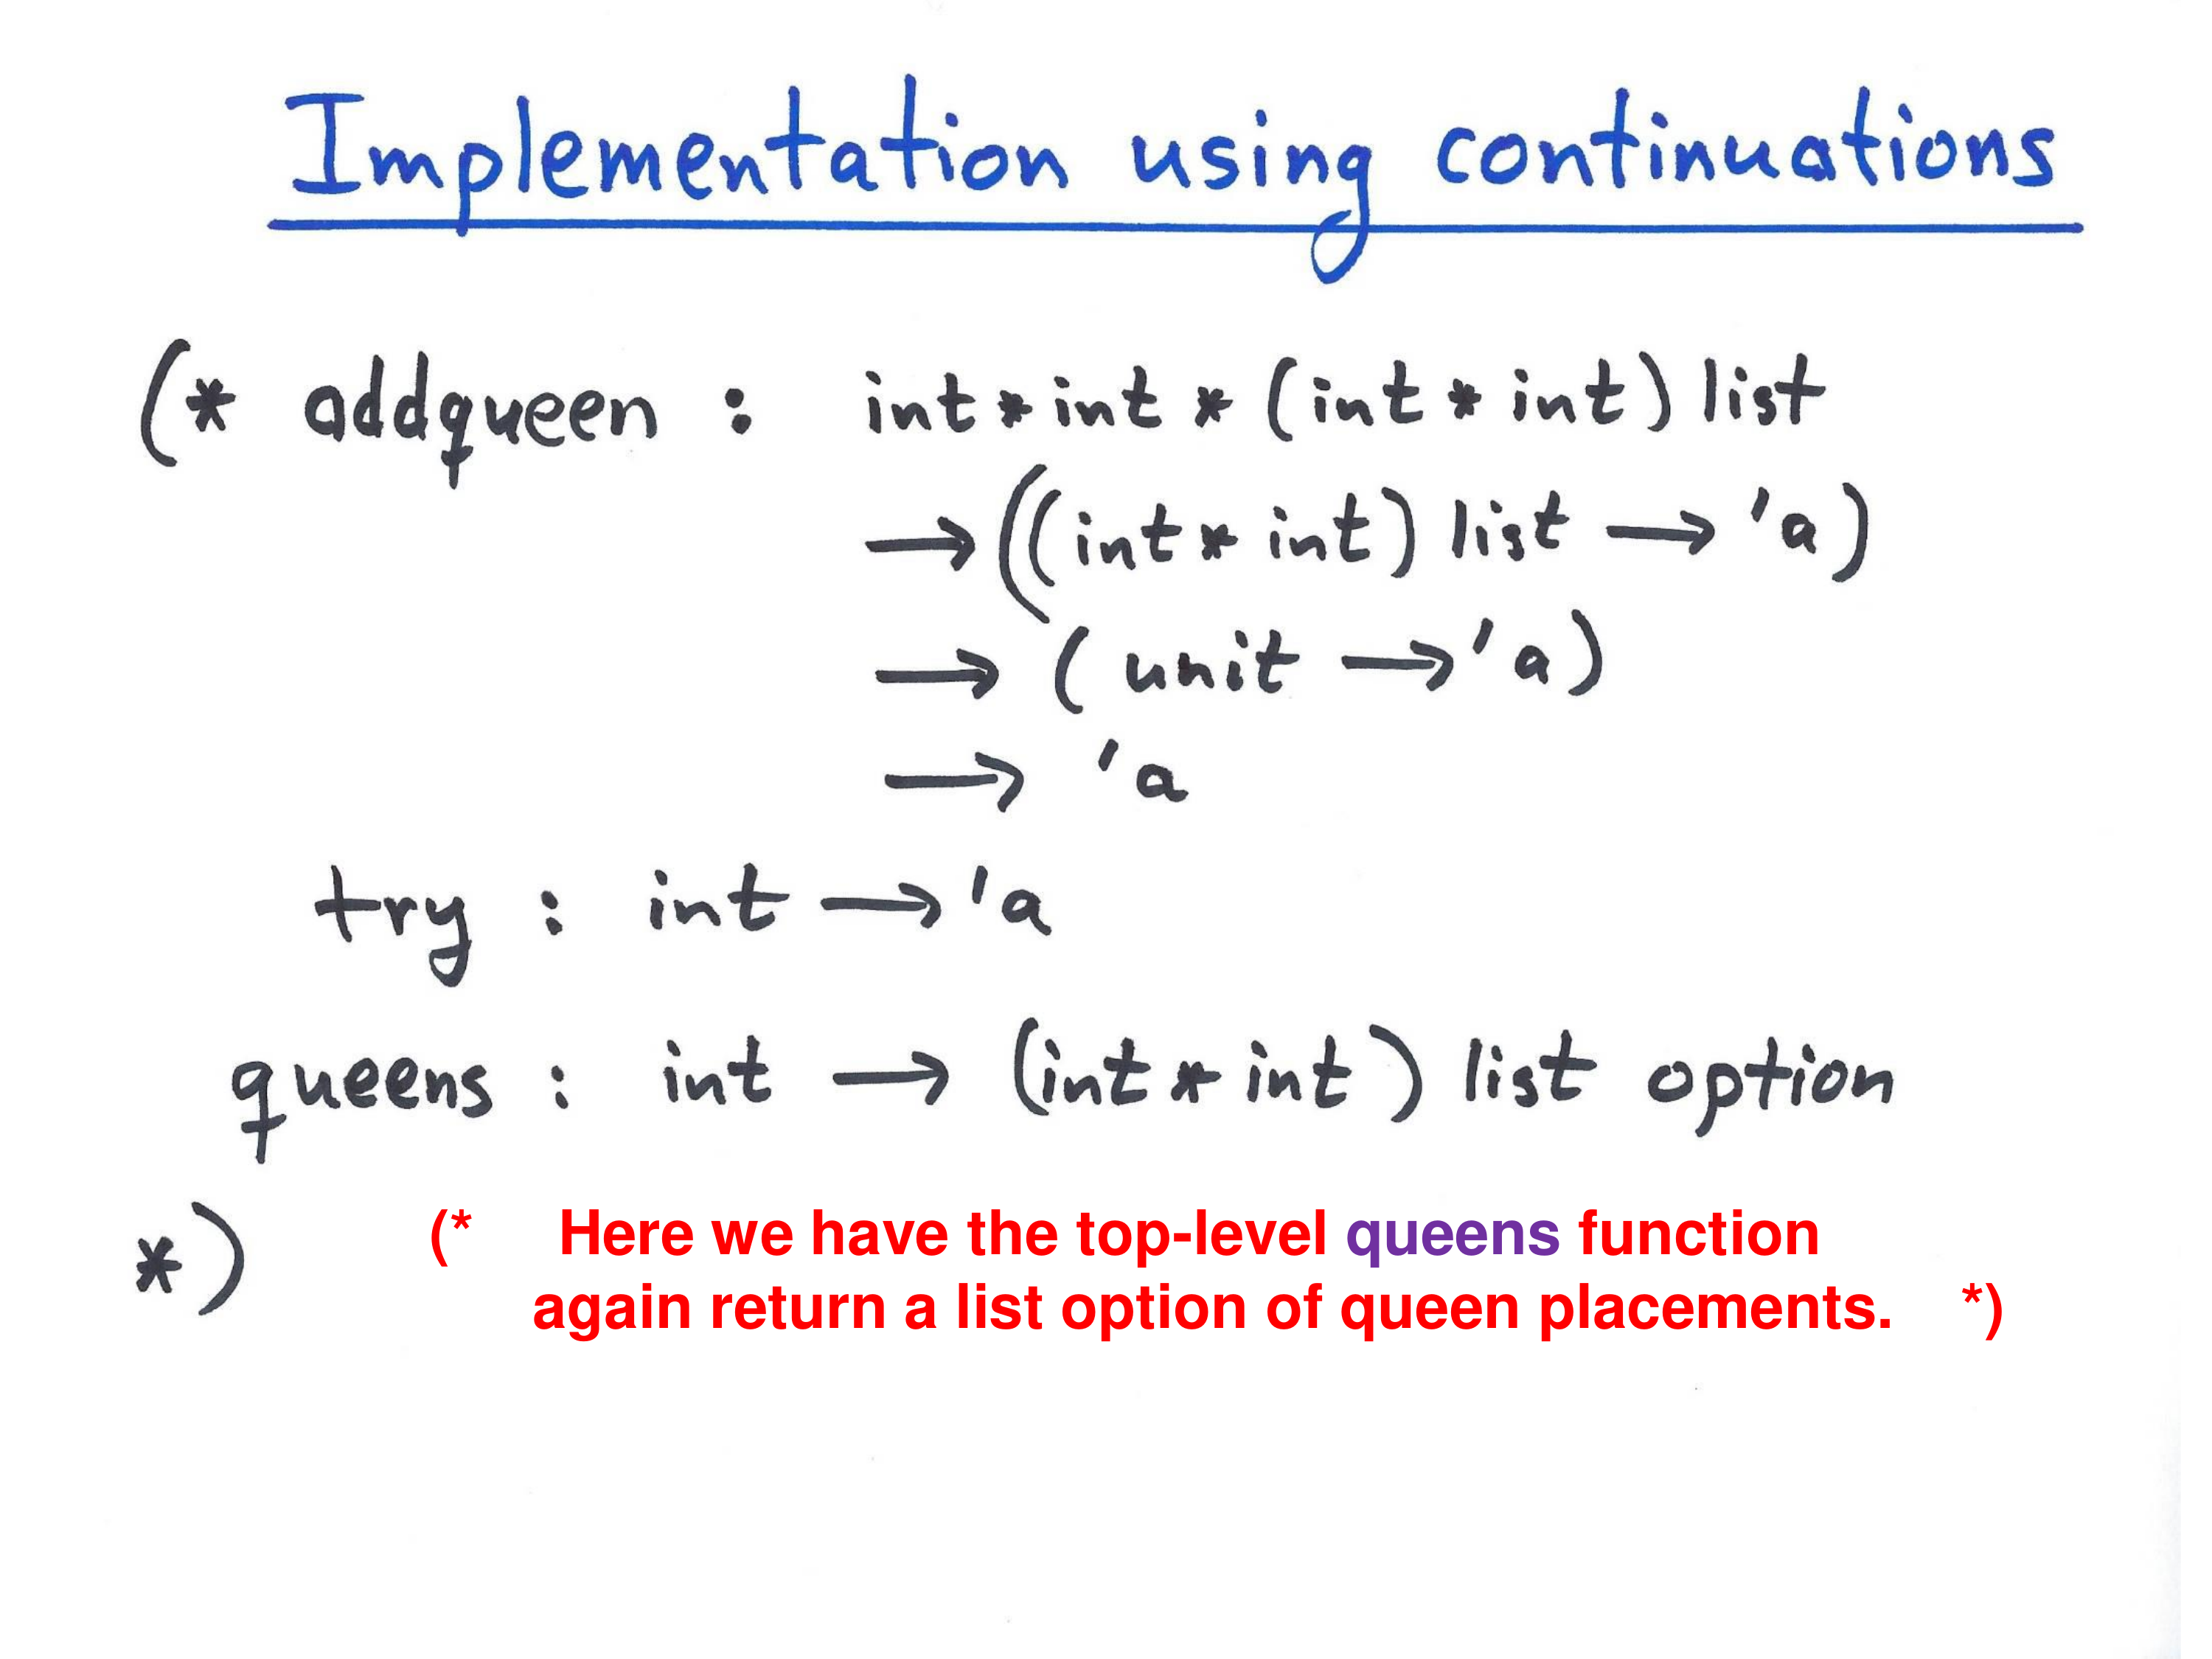 Implementation using continuations
(* addqueen : int * int * (int * int) list
→ ((int * int) list → 'a)
→ (unit → 'a)
→ 'a
try : int → 'a
queens : int → (int * int) list option
*)
(* Here we have the top-level queens function
again return a list option of queen placements. *)